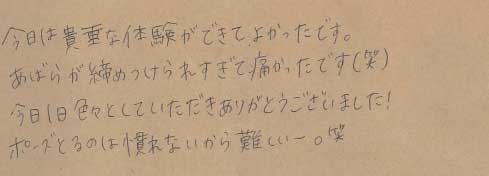 今日は貴重な体験ができてよかったです。
あばらが締めつけられすぎて痛かったです(笑)
今日1日色々としていただきありがとうございました!
ポーズとるのは慣れないから難しいー。笑